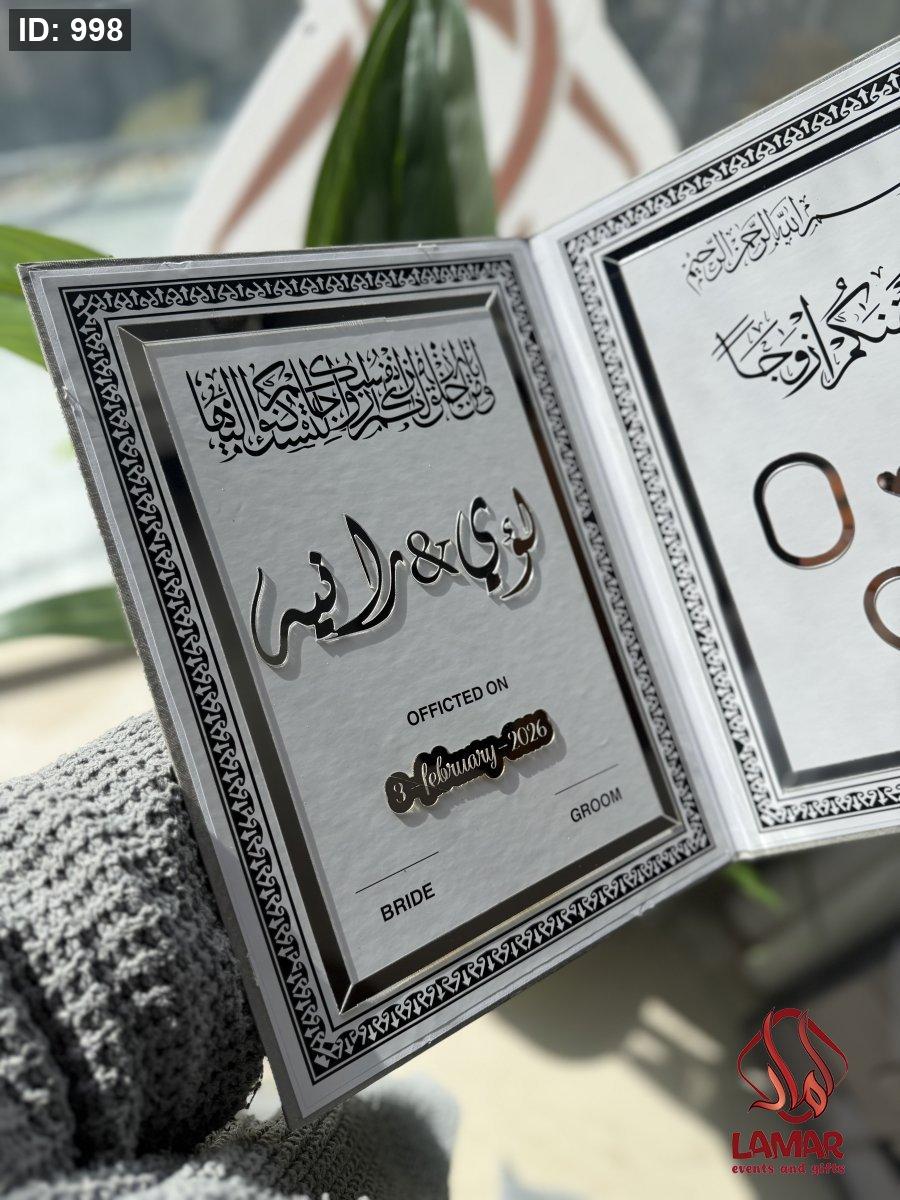 ID: 998
ومن آياته أن خلق لكم من أنفسكم أزواجا لتسكنوا إليها
لؤي & رانيه
OFFICTED ON
3-february-2026
GROOM
BRIDE
بسم الله الرحمن الرحيم
أزواجا
لمار
LAMAR
events and gifts